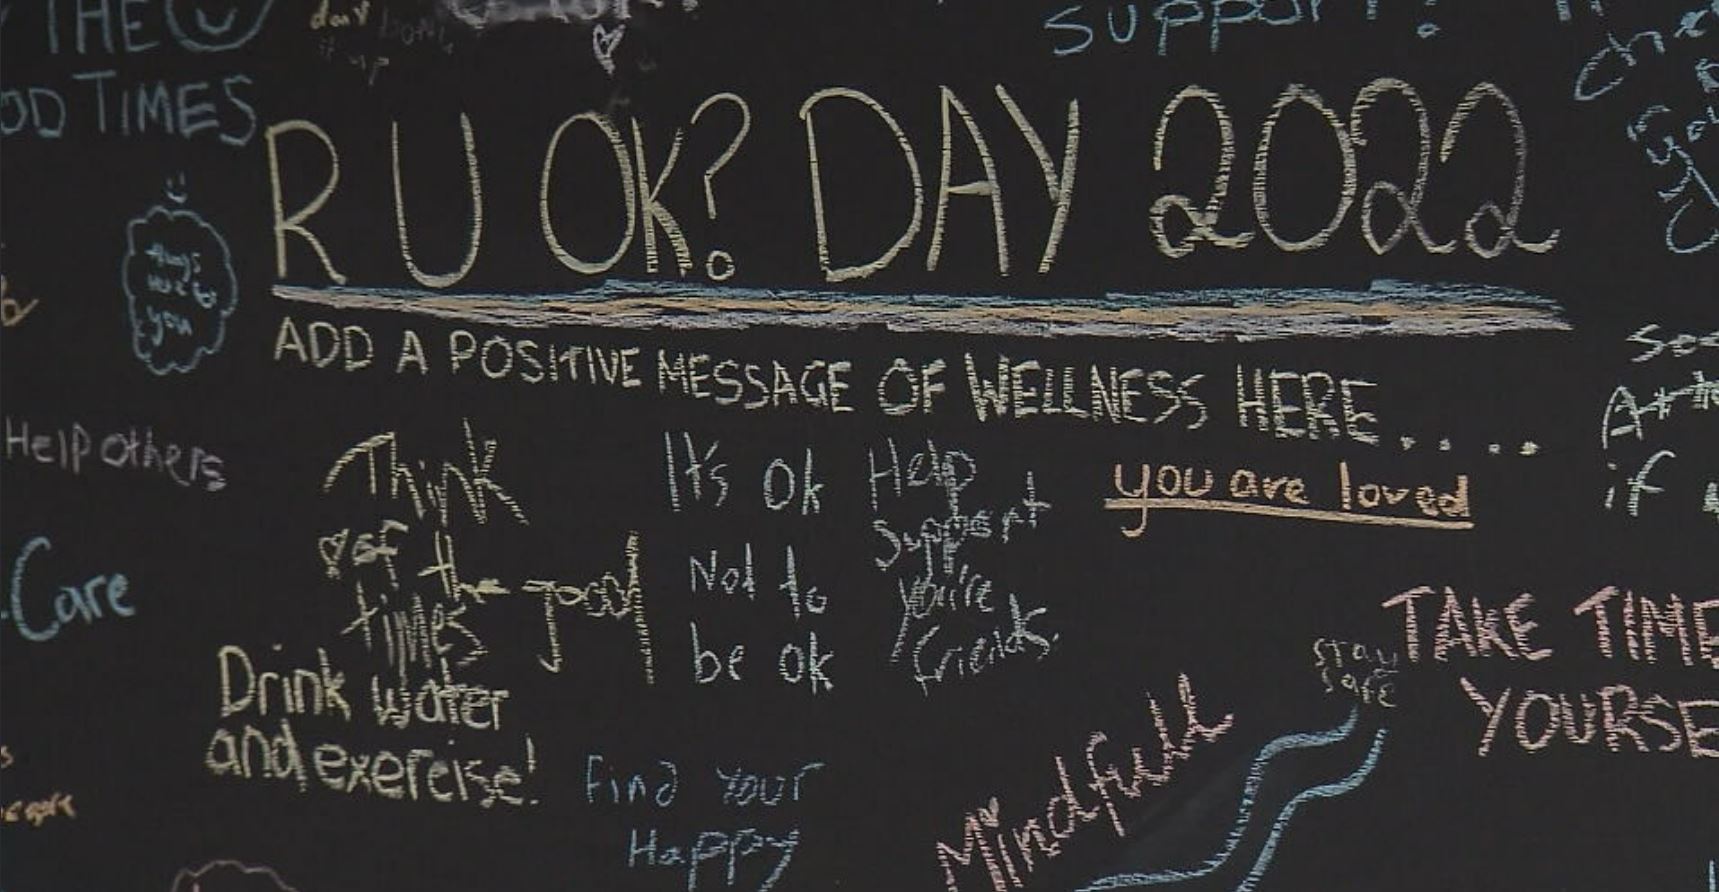 THE
OD TIMES
day
it up
SUPPORT!
R U OK? DAY 2022
ADD A POSITIVE MESSAGE OF WELLNESS HERE.....
you
Help others
Think
of the good
times
It's ok
Not to
be ok
Help
Support
you're
friends.
you are loved
if
Care
Drink water
and exercise!
Find Your
Happy
Mindfull
stay
safe
TAKE TIME
YOURSE